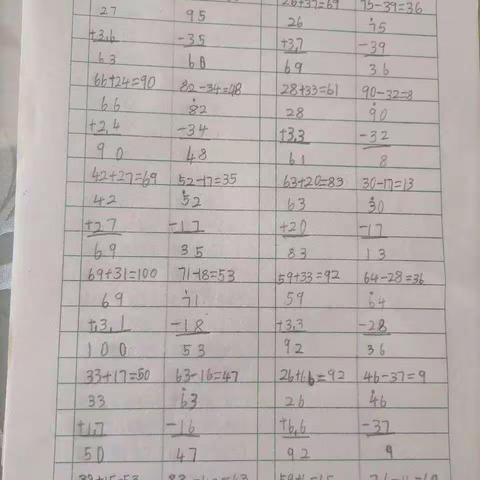 26+37=69 75-39=36
27 95 26 75
+3,6 -35 +3,7 -39
63 60 69 36
66+24=90 82-34=48 28+33=61 90-32=8
66 82 28 90
+2,4 -34 +3,3 -32
90 48 61 8
42+27=69 52-17=35 63+20=83 30-17=13
42 52 63 30
+27 -17 +20 -17
69 35 83 13
69+31=100 71-18=53 59+33=92 64-28=36
69 71 59 64
+,3,1 -18 +3,3 -28
100 53 92 36
33+17=50 63-16=47 26+66=92 46-37=9
33 63 26 46
+1,7 -16 +6,6 -37
50 47 92 9